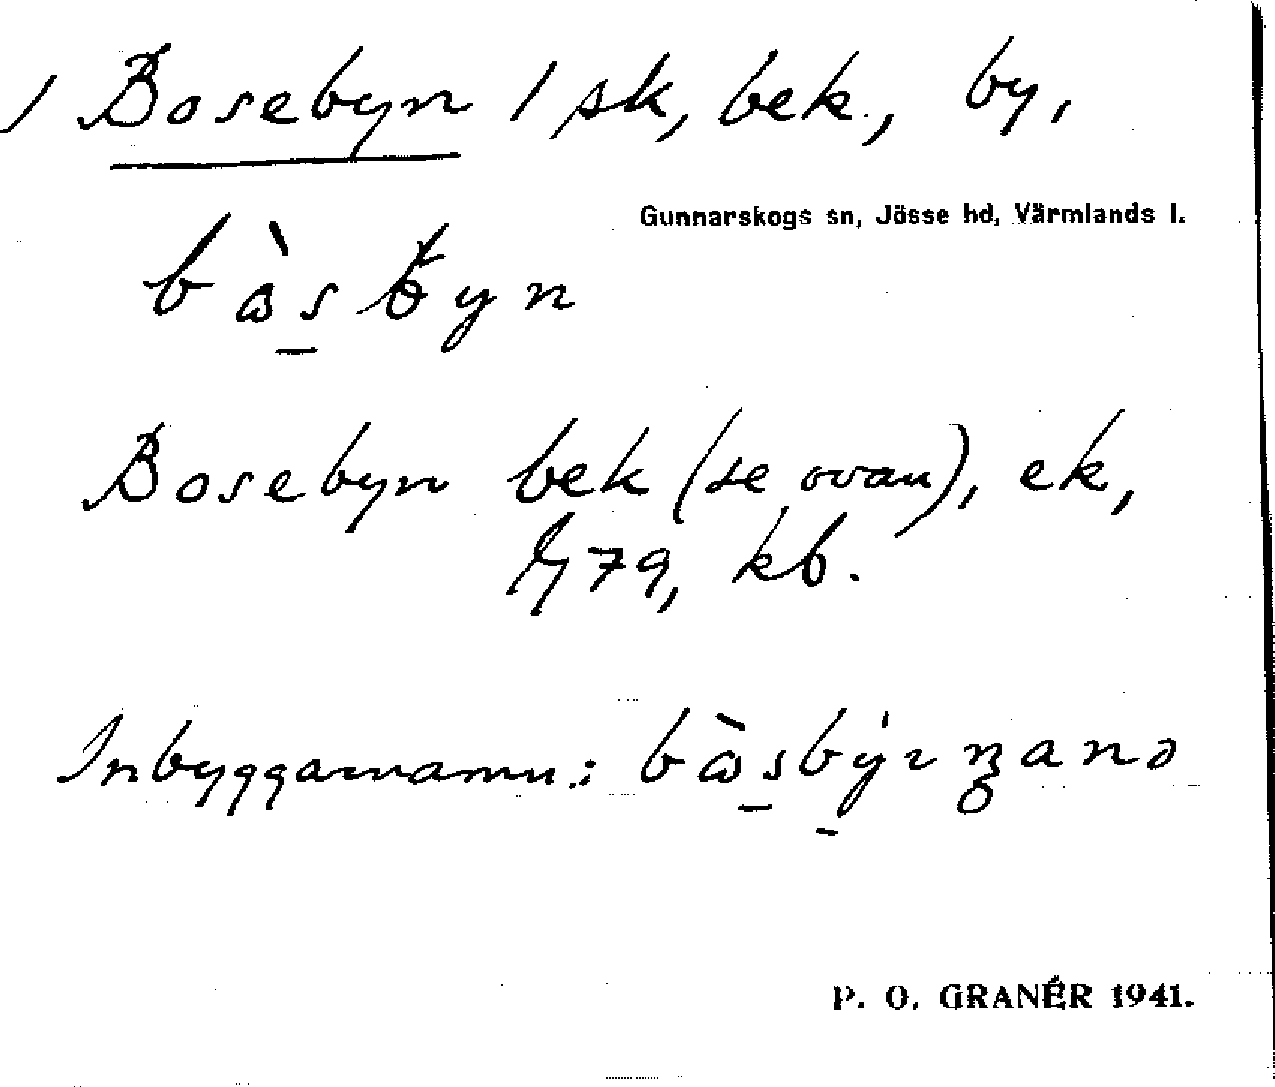 / Bosebyn / sk, bek., by,
Gunnarskogs sn, Jösse hd, Värmlands l.
Bosebyn bek (se ovan), ek,
G79, kb.
Inbyggarnamn:
P. O. GRANÉR 1941.